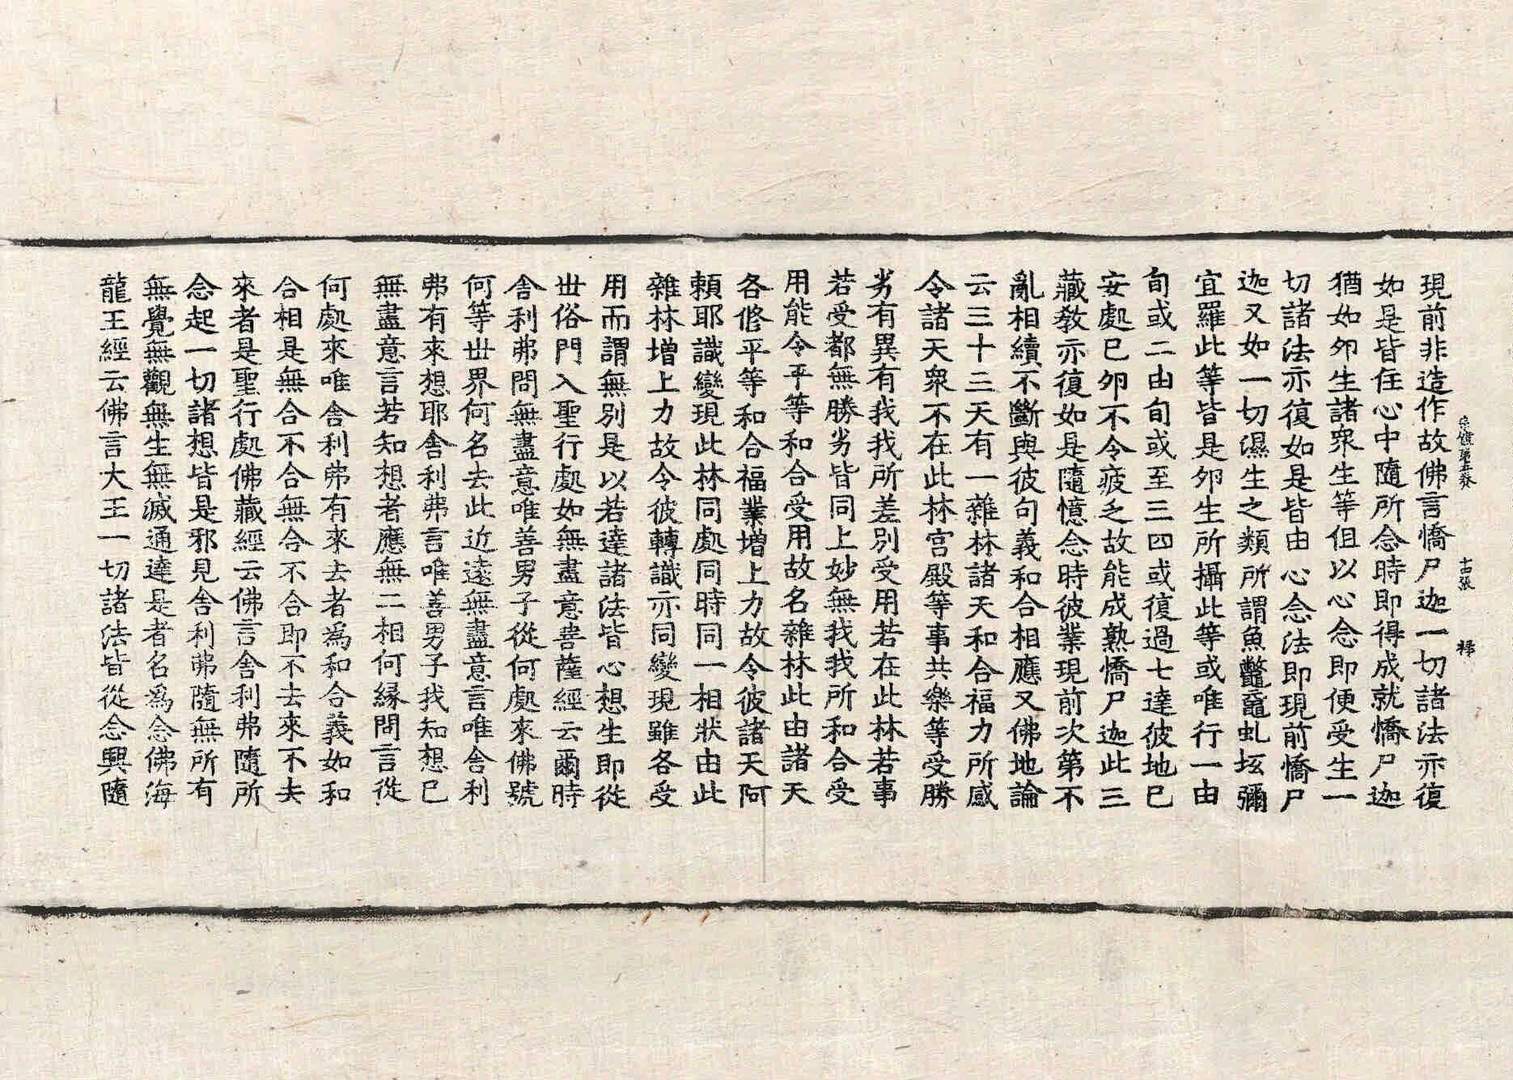 宗鏡第五
現前非造作故佛言憍尸迦一切諸法亦復
如是皆住心中隨所念時即得成就憍尸迦
猶如夘生諸衆生等但以心念即便受生一
切諸法亦復如是皆由心念法即現前憍尸
迦又如一切濕生之類所謂魚鼈黿虬坻彌
宜羅此等皆是夘生所攝此等或唯行一由
旬或二由旬或至三四或復過七達彼地已
安處已夘不令疲乏故能成熟憍尸迦此三
藏教亦復如是隨憶念時彼業現前次第不
亂相續不斷與彼句義和合相應又佛地論
云三十三天有一雜林諸天和合福力所感
令諸天衆不在此林宮殿等事共樂等受勝
劣有異有我我所差別受用若在此林若事
若受都無勝劣皆同上妙無我我所和合受
用能令平等和合受用故名雜林此由諸天
各修平等和合福業增上力故令彼諸天阿
賴耶識變現此林同處同時同一相狀由此
雜林增上力故令彼轉識亦同變現雖各受
用而謂無別是以若達諸法皆心想生即從
世俗門入聖行處如無盡意菩薩經云爾時
舍利弗問無盡意唯善男子從何處來佛號
何等世界何名去此近遠無盡意言唯舍利
弗有來想耶舍利弗言唯善男子我知想已
無盡意言若知想者應無二相何緣問言從
何處來唯舍利弗有來去者爲和合義如和
合相是無合不合無合不合即不去來不去
來者是聖行處佛藏經云佛言舍利弗隨所
念起一切諸想皆是邪見舍利弗隨無所有
無覺無觀無生無滅通達是者名爲念佛海
龍王經云佛言大王一切諸法皆從念興隨